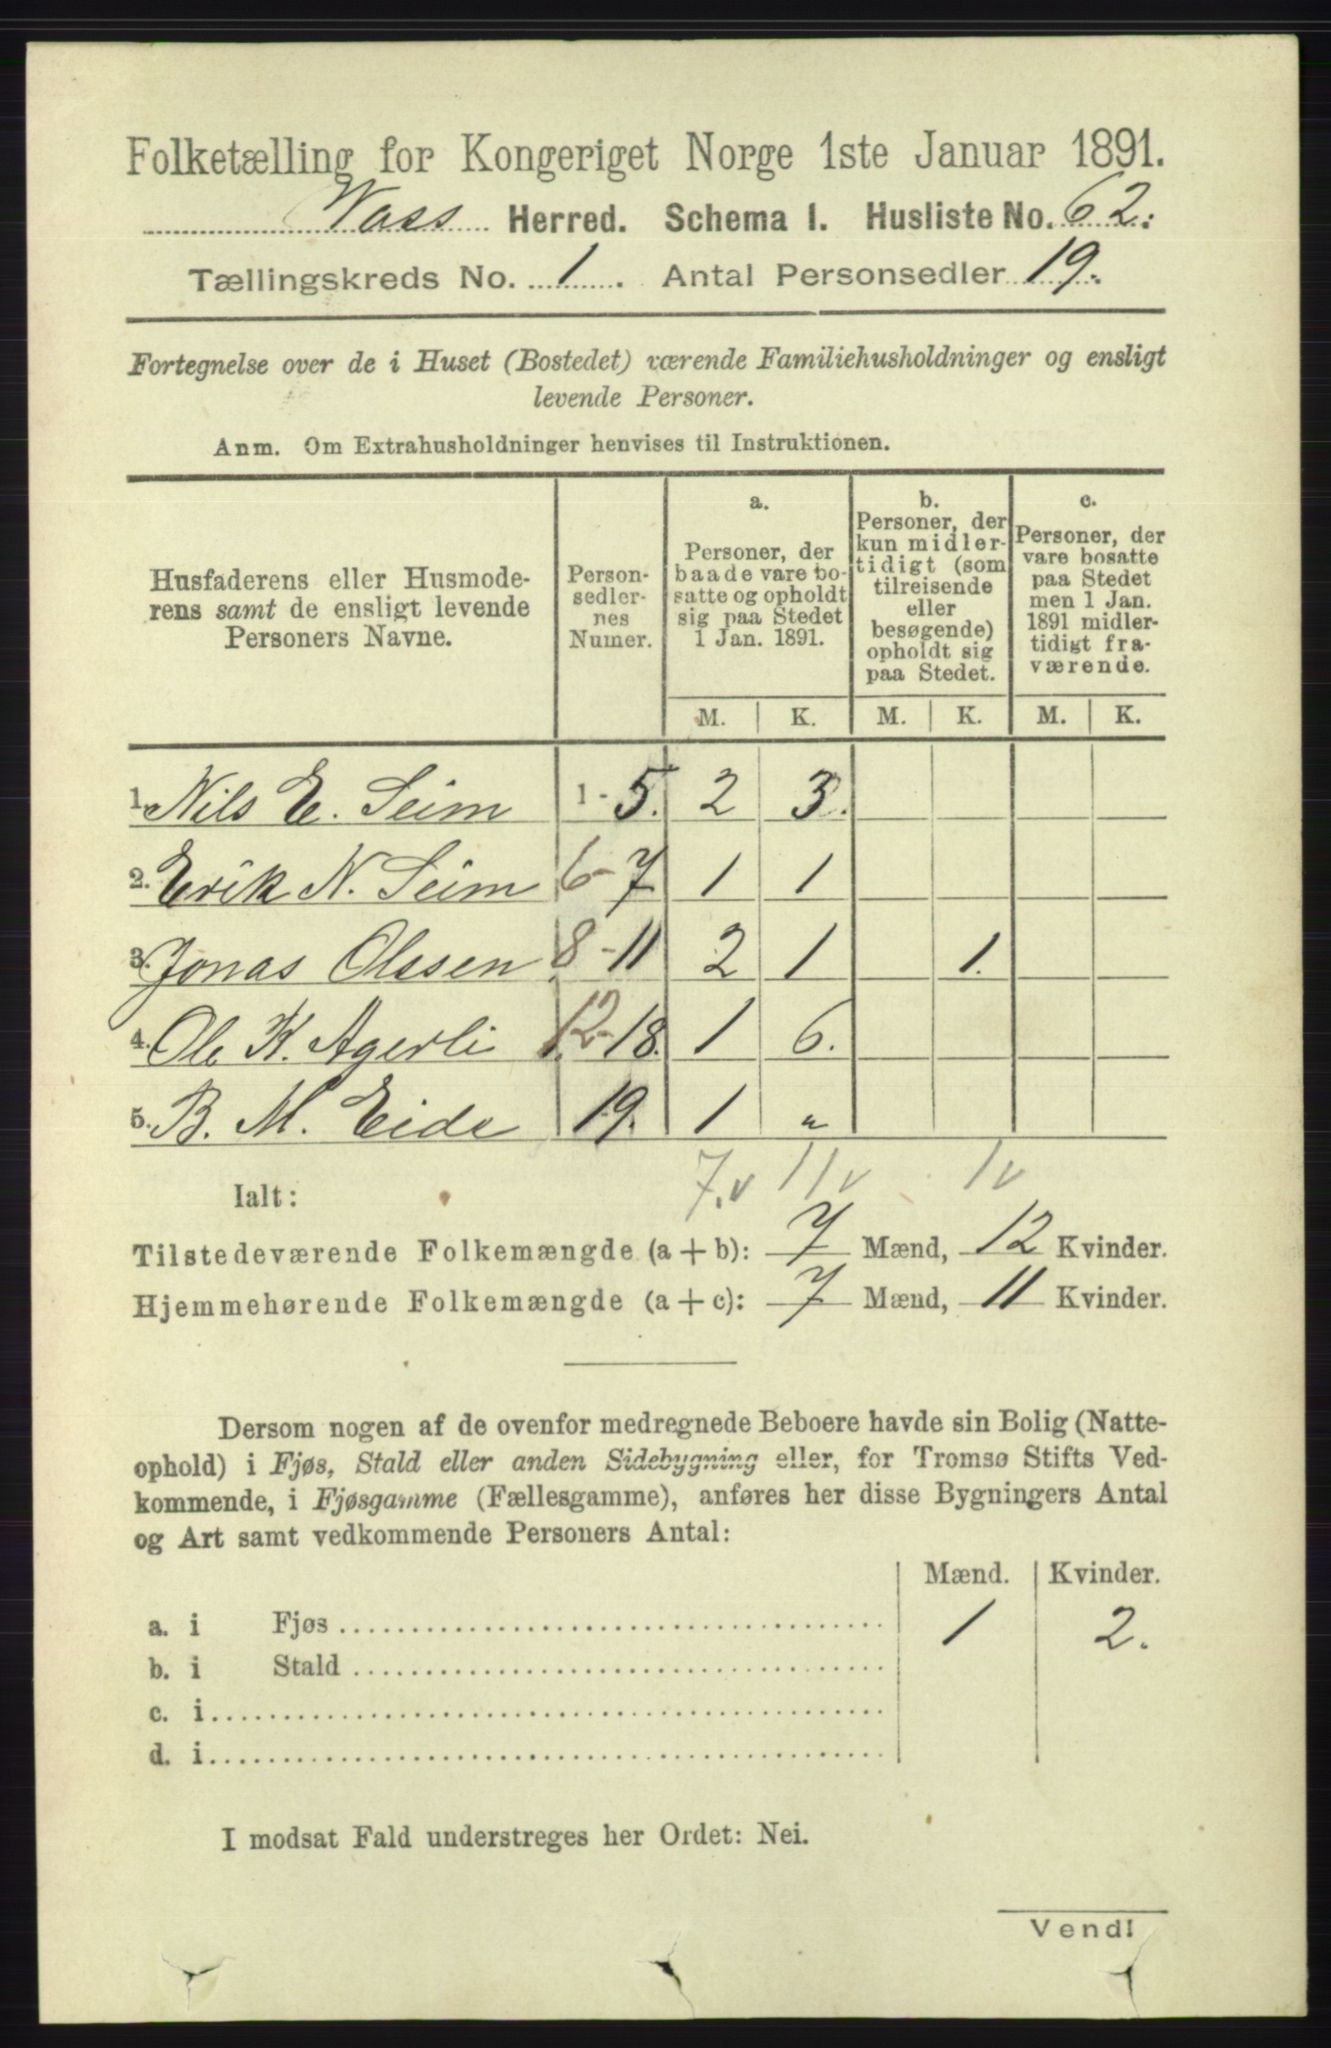 Folketælling for Kongeriget Norge 1ste Januar 1891.
Voss Herred. Schema I. Husliste No. 62.
Tællingskreds No. 1. Antal Personsedler 19.
Fortegnelse over de i Huset (Bostedet) værende Familiehusholdninger og ensligt
levende Personer.
Anm. Om Extrahusholdninger henvises til Instruktionen.
Husfaderens eller Husmode-
rens samt de ensligt levende
Personers Navne.
Person-
sedler-
nes
Numer.
a.
Personer, der
baade vare bo-
satte og opholdt
sig paa Stedet
1 Jan. 1891.
b.
Personer, der
kun midler-
tidigt (som
tilreisende
eller
besøgende)
opholdt sig
paa Stedet.
c.
Personer, der
vare bosatte
paa Stedet
men 1 Jan.
1891 midler-
tidigt fra-
værende.
M. K. M. K. M. K.
1. Nils E. Seim 1-5. 2 3.
2. Erik N. Seim 6-7 1 1
3. Jonas Olssen 8-11 2 1 1.
4. Ole K. Agerli 12-18. 1 6.
5. B. M. Eide 19. 1 "
Ialt: 7.v 11v 1v
Tilstedeværende Folkemængde (a + b): 7 Mænd, 12 Kvinder.
Hjemmehørende Folkemængde (a + c): 7 Mænd, 11 Kvinder.
Dersom nogen af de ovenfor medregnede Beboere havde sin Bolig (Natte-
ophold) i Fjøs, Stald eller anden Sidebygning eller, for Tromsø Stifts Ved-
kommende, i Fjøsgamme (Fællesgamme), anføres her disse Bygningers Antal
og Art samt vedkommende Personers Antal:
Mænd. Kvinder.
a. i Fjøs 1 2.
b. i Stald
c. i
d. i
I modsat Fald understreges her Ordet: Nei.
Vend!